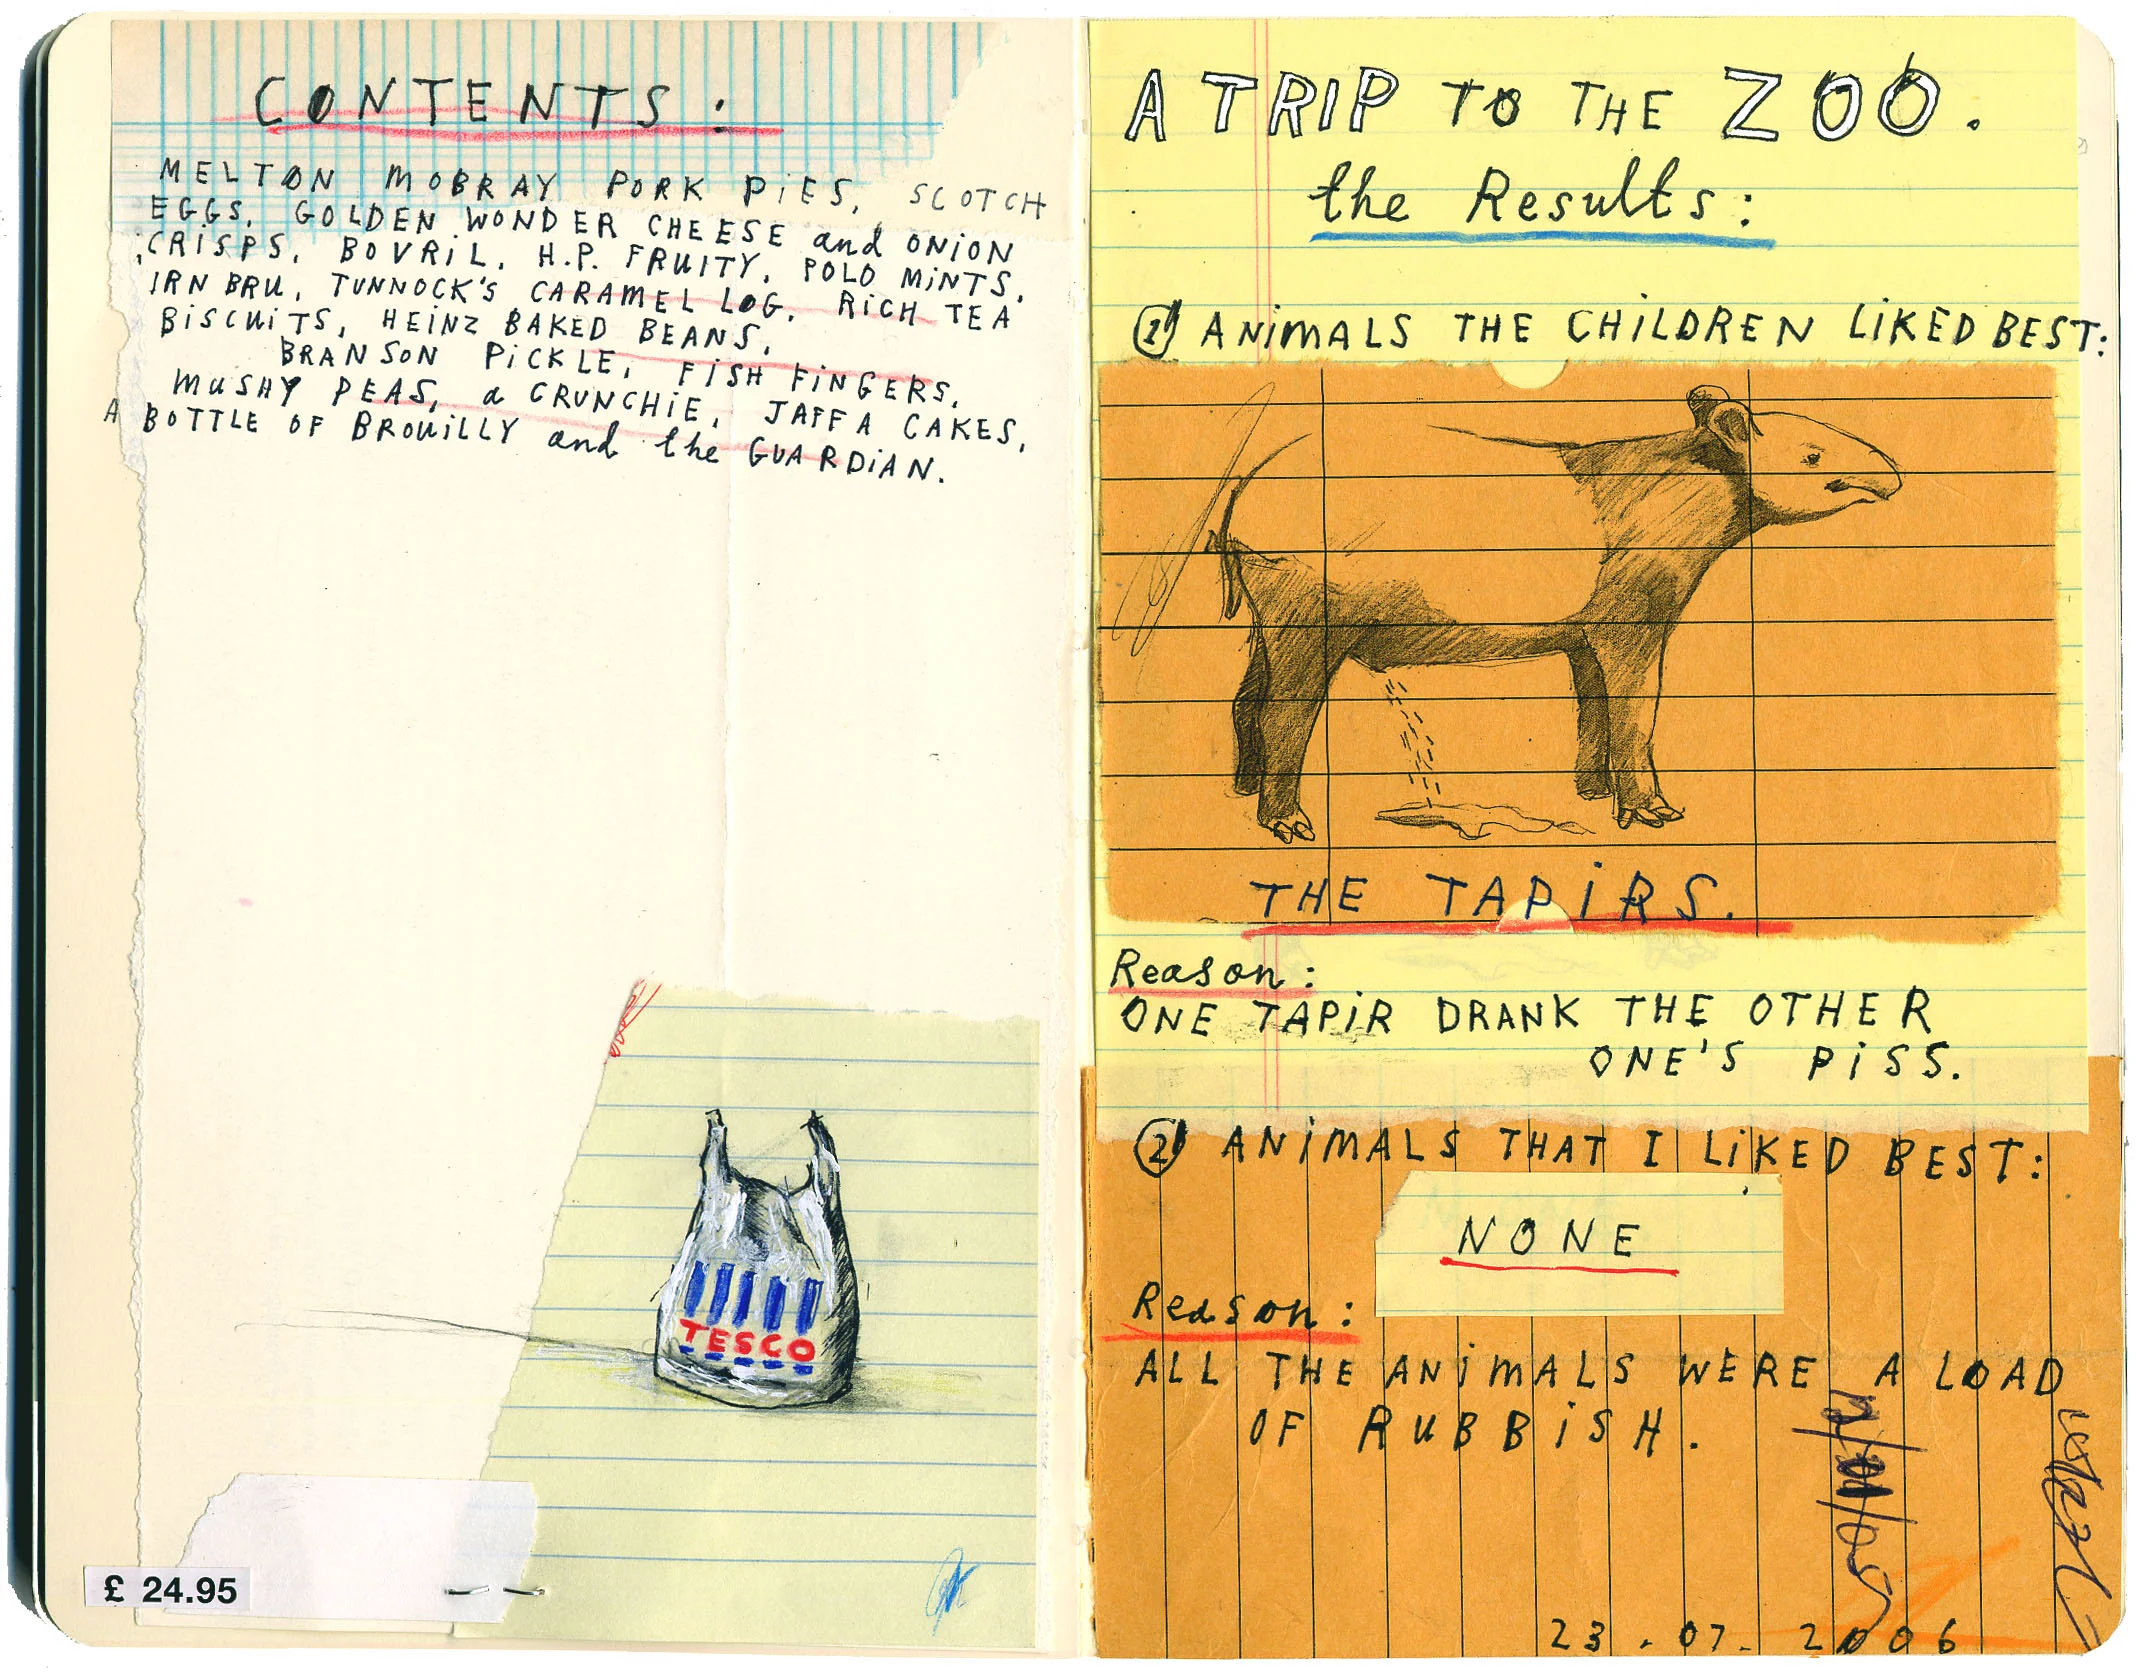 CONTENTS:
MELTON MOBRAY PORK PiES, SCOTCH
EGGS, GOLDEN WONDER CHEESE and ONION
CRiSPS, BOVRiL, H.P. FRUITY, POLO MiNTS,
IRN BRU, TUNNOCK'S CARAMEL LOG, RiCH TEA
BiSCUiTS, HEiNZ BAKED BEANS,
BRANSON PiCKLE, FiSH FiNGERS,
MUSHY PEAS, a CRUNCHiE, JAFFA CAKES,
A BOTTLE OF BROUiLLY and the GUARDiAN.
TESCO
£ 24.95
A TRIP TO THE ZOO.
the Results:
1 ANiMALS THE CHiLDREN LiKED BEST:
THE TAPiRS.
Reason:
ONE TAPiR DRANK THE OTHER
ONE'S PiSS.
2 ANiMALS THAT I LiKED BEST:
NONE
Reason:
ALL THE ANiMALS WERE A LOAD
OF RUBBiSH.
23.07.2006